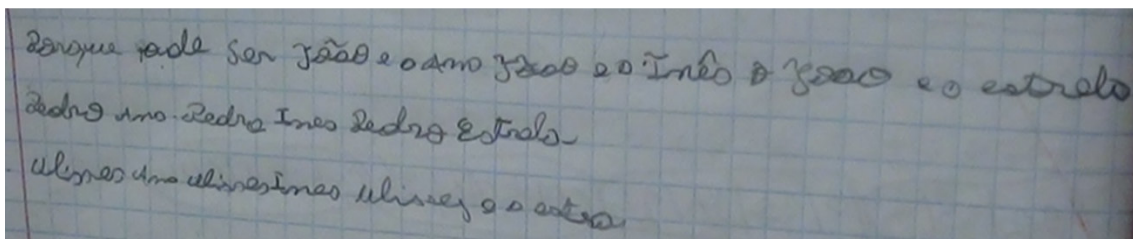 Porque pode ser João e o Ana João e o Inês o João e o estrela
Pedro Ana. Pedro Ines Pedro Estrela
Ulisses Ana Ulisses Ines Ulisses e o estra